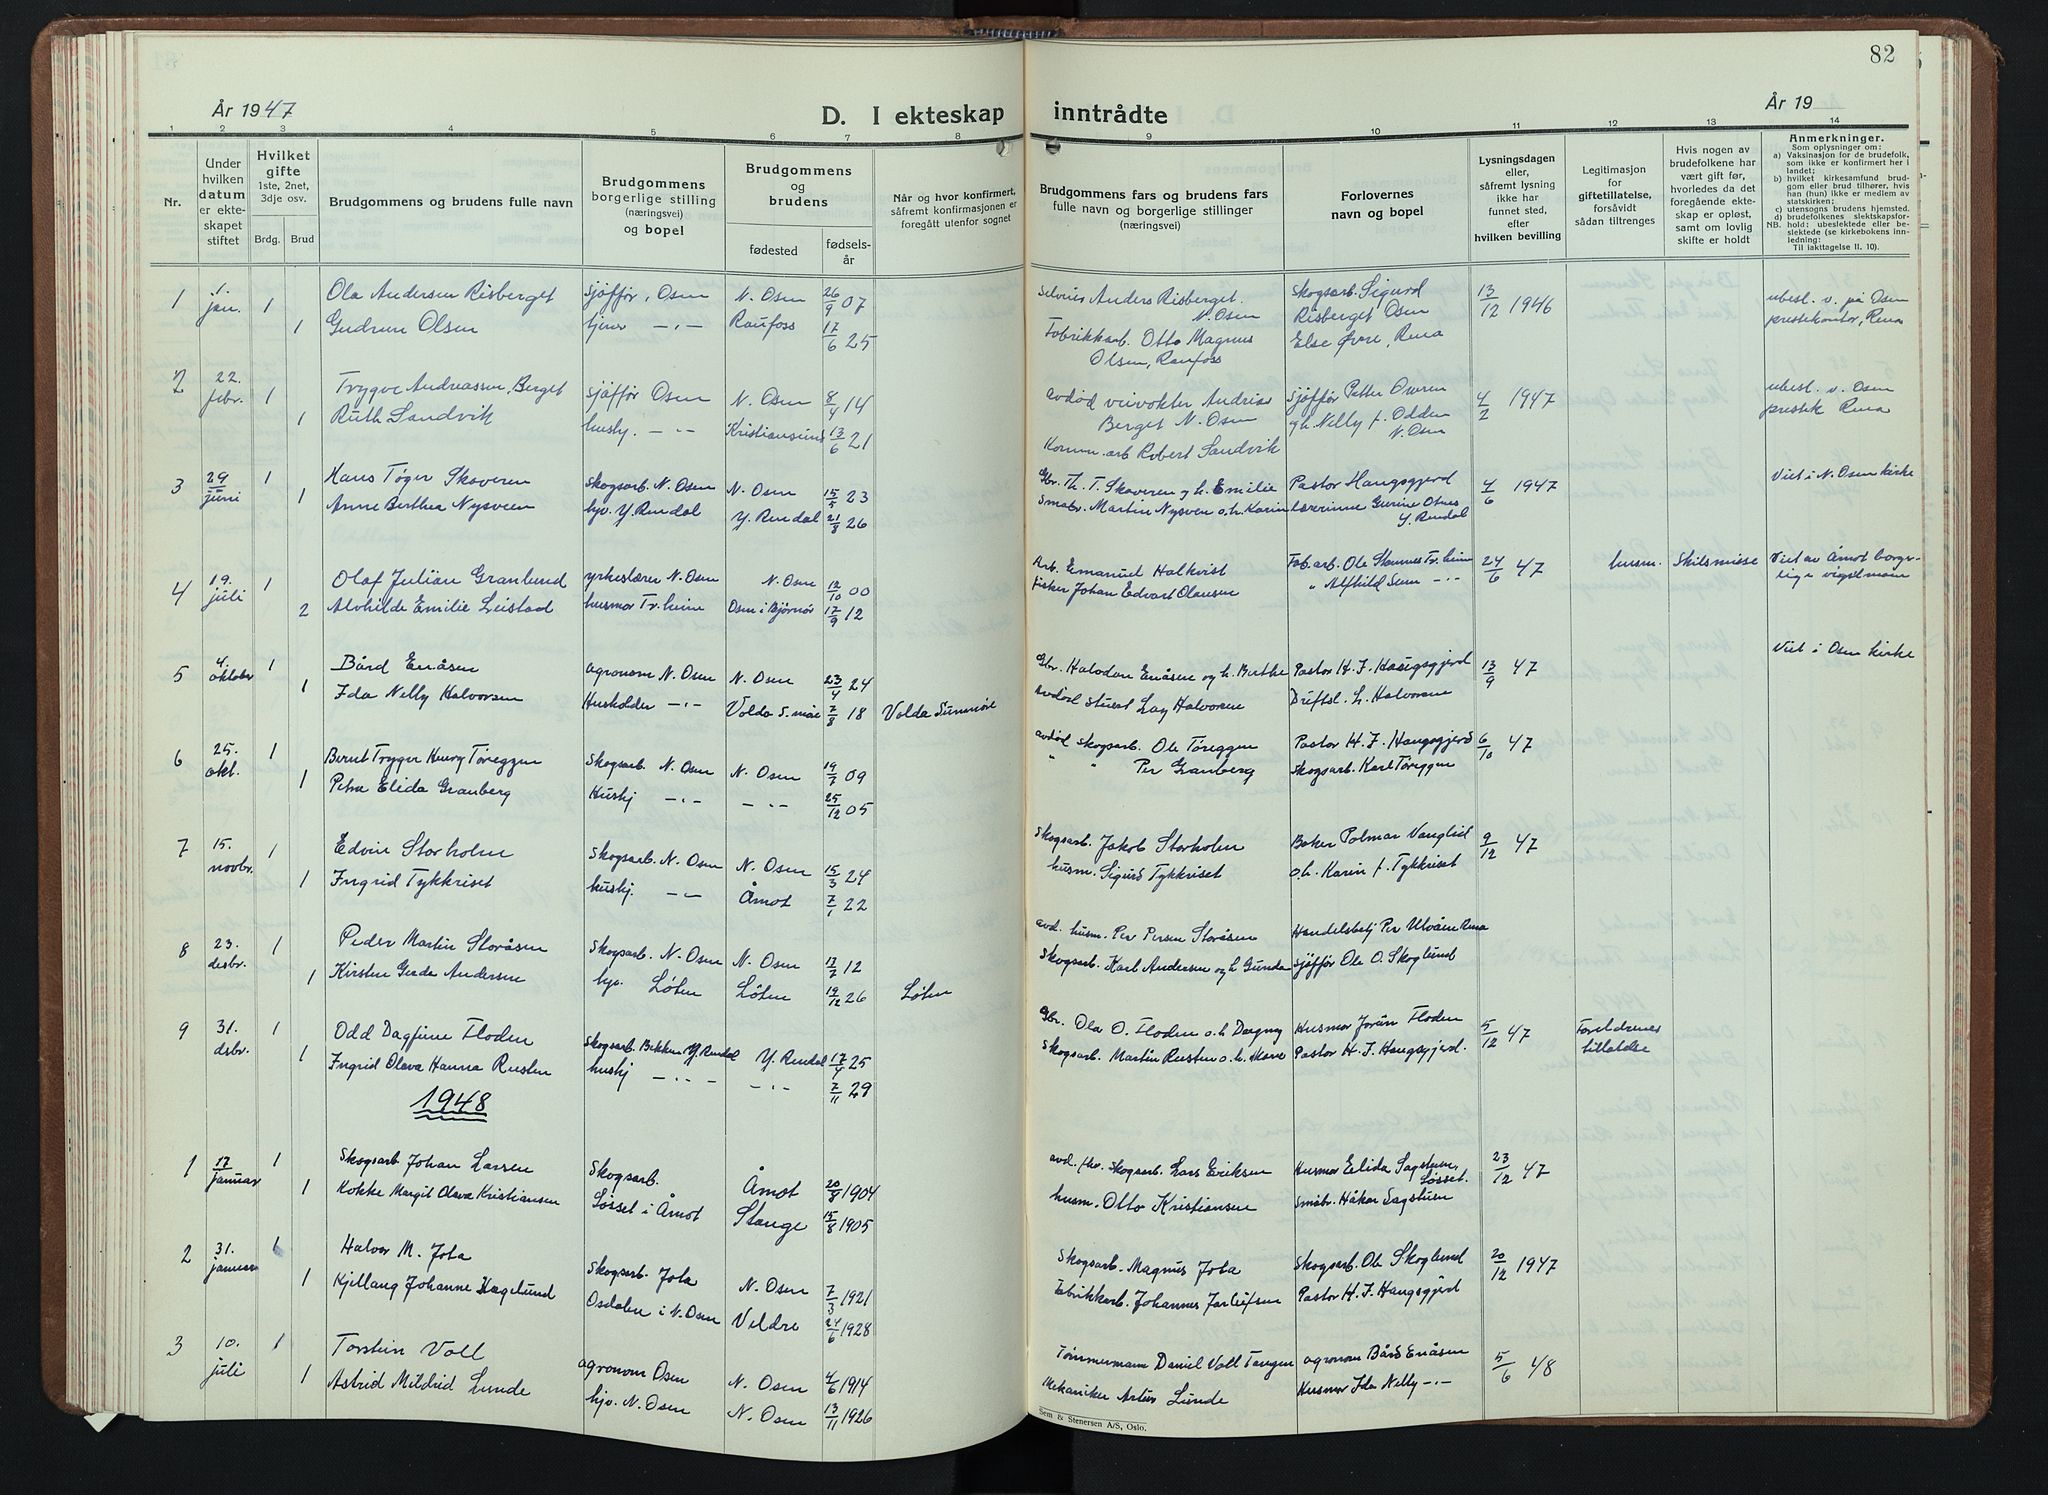 82
År 1947
D. I ekteskap inntrådte
År 19
1 2 3 4 5 6 7 8 9 10 11 12 13 14
Nr.
Under hvilken datum er ekteskapet stiftet
Hvilket gifte 1ste, 2net, 3dje osv.
Brdg. Brud
Brudgommens og brudens fulle navn
Brudgommens borgerlige stilling (næringsvei) og bopel
Brudgommens og brudens
fødested
fødselsår
Når og hvor konfirmert, såfremt konfirmasjonen er foregått utenfor sognet
Brudgommens fars og brudens fars fulle navn og borgerlige stillinger (næringsvei)
Forlovernes navn og bopel
Lysningsdagen eller, såfremt lysning ikke har funnet sted, efter hvilken bevilling
Legitimasjon for giftetillatelse, forsåvidt sådan tiltrenges
Hvis nogen av brudefolkene har vært gift før, hvorledes da det foregående ekteskap er opløst, samt om lovlig skifte er holdt
Anmerkninger.
Som oplysninger om:
a) Vaksinasjon for de brudefolk, som ikke er konfirmert her i landet;
b) hvilket kirkesamfund brudgom eller brud tilhører, hvis han (hun) ikke er medlem av statskirken;
c) utensogns brudens hjemsted.
d) brudefolkenes slektskapsforhold: ubeslektede eller beslektede (se kirkebokens innledning:
NB. Til iakttagelse II. 10).
1 1. jan. 1 Ola Andersen Risberget sjåffør, Osen N. Osen 26/9 07 Selveier Anders Risberget. N. Osen Skogsarb. Sigurd Risberget Osen 13/12 1946 ubesl. v. på Osen prestekontor, Rena
1 Gudrun Olsen tjener —〃— Raufoss 17/6 25 Fabrikkarb. Otto Magnus Olsen, Raufoss Else Øvre, Rena
2 22. febr. 1 Trygve Andreassen, Berget sjåffør Osen N. Osen 8/4 14 avdød veivokter Andreas Berget N. Osen sjåffør Petter Osveen 4/2 1947 ubesl. v. Osen prestek Rena
1 Ruth Sandvik hushj. —〃— Kristiansund 13/6 21 Komm. arb Robert Sandvik og h. Nelly f. Odden N. Osen
3 29/juni 1 Hans Tøger Skaveren skogsarb. N. Osen N. Osen 15/5 23 Gbr. Th. T. Skaveren og h. Emilie Pastor Haugsgjerd 4/6 1947 Viet i N. Osen kirke
1 Anne Berthea Nysveen hjv. Y. Rendal Y. Rendal 21/8 26 Småbr. Martin Nysveen o.h. Karin Lærerinne Gurine Otnes Y. Rendal
4 19. juli 1 Olaf Julian Granlund yrkeslærer N. Osen N. Osen 12/10 00 Arb. Emanuel Halkvist Fab. arb. Ole Stamnes Tr. heim 24/6 47 husm. Skilsmisse Viet av Åmot borgerlige vigselmann
2 Alvhilde Emilie Leistad husmor Tr. heim Osen i Bjørnør 17/9 12 fisker Johan Edvart Olausen 〃 Alfhild Sem —〃—
5 4. oktober 1 Bård Enåsen agronom N. Osen N. Osen 23/4 24 Gbr. Halvdan Enåsen og h. Berthe Pastor H. J. Haugsgjerd 13/9 47 Viet i Osen kirke
1 Ida Nelly Halvorsen Husholder —〃— Volda S. møre 7/8 18 Volda Sunnmøre avdød stuert Lay Halvorsen Driftsl. L. Halvorsen
6 25. okt. 1 Bernt Trygve Henry Tøreggen Skogsarb. N. Osen N. Osen 19/7 09 avdød skogsarb. Ole Tøreggen Pastor H. J. Haugsgjerd 6/10 47
1 Petra Elida Granberg Hushj —〃— —〃— 25/12 05 〃 〃 Per Granberg Skogsarb. Karl Tøreggen
7 15. novbr. 1 Edvin Storholm Skogsarb. N. Osen N. Osen 15/3 24 Skogsarb. Jakob Storholm Baker Polmar Vanglid 9/12 47
1 Ingrid Tykkriset hushj. —〃— Åmot 7/1 22 husm. Sigurd Tykkriset o.h. Karin f. Tykkriset
8 23. desbr. 1 Peder Martin Storåsen Skogsarb. N. Osen N. Osen 17/7 12 avd. husm. Per Persen Storåsen Handelsbetj Per Ulvåen Rena
1 Kirsten Gerda Andersen hjv. Løten Løten 19/12 26 Løten Skogsarb. Karl Andersen og h Gunda sjåffør Ole O. Skoglund
9 31. desbr. 1 Odd Dagfinne Floden Skogsarb. Bekken Y. Rendal Y. Rendal 17/4 25 Gbr. Ola O. Floden o.h. Dagny Husmor Jorun Floden 5/12 47 Foreldrenes tillatelse
1 Ingrid Olava Hanna Rusten hushj —〃— —〃— 7/11 29 Skogsarb. Martin Rusten o.h. Marie Pastor H. J. Haugsgjerd.
1948
1 17/januar 1 Skogsarb. Johan Larsen Skogsarb. Åmot 20/8 1904 avd. fhv. skogsarb. Lars Eriksen Husmor Elida Sagstuen, Løsset. 23/12 47
1 Kokke Margit Olava Kristiansen Løsset i Åmot Stange 15/8 1905 husm. Otto Kristiansen Småbr. Håkon Sagstuen
2 31. januar 1 Halvor M. Jota Skogsarb. Jota N. Osen 7/3 1921 Skogsarb. Magnus Jota Skogsarb. Ole Skoglund 20/12 1947
1 Kjellaug Johanne Hagelund Osdalen i N. Osen Veldre 24/6 1928 Fabrikkarb. Johannes Jarleifsen Pastor H. J. Haugsgjerd
3 10. juli 1 Torstein Voll agronom Osen N. Osen 4/6 1914 Tømmermann Daniel Voll Tangen agronom Bård Enåsen 5/6 48
1 Astrid Mildrid Lunde hjv. N. Osen N. Osen 13/11 1926 Mekaniker Artur Lunde Husmor Ida Nelly —〃—
Sem & Stenersen A/S, Oslo.